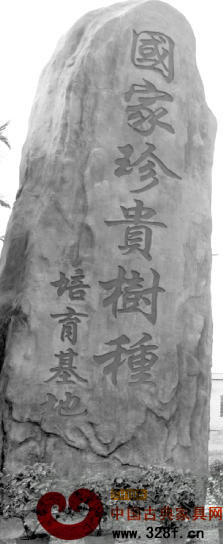 國家珍貴樹種
培育基地
中国古典家具网
www.328f.cn